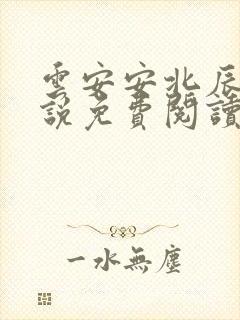 雲安安北辰
說免費閱讀
一水無塵